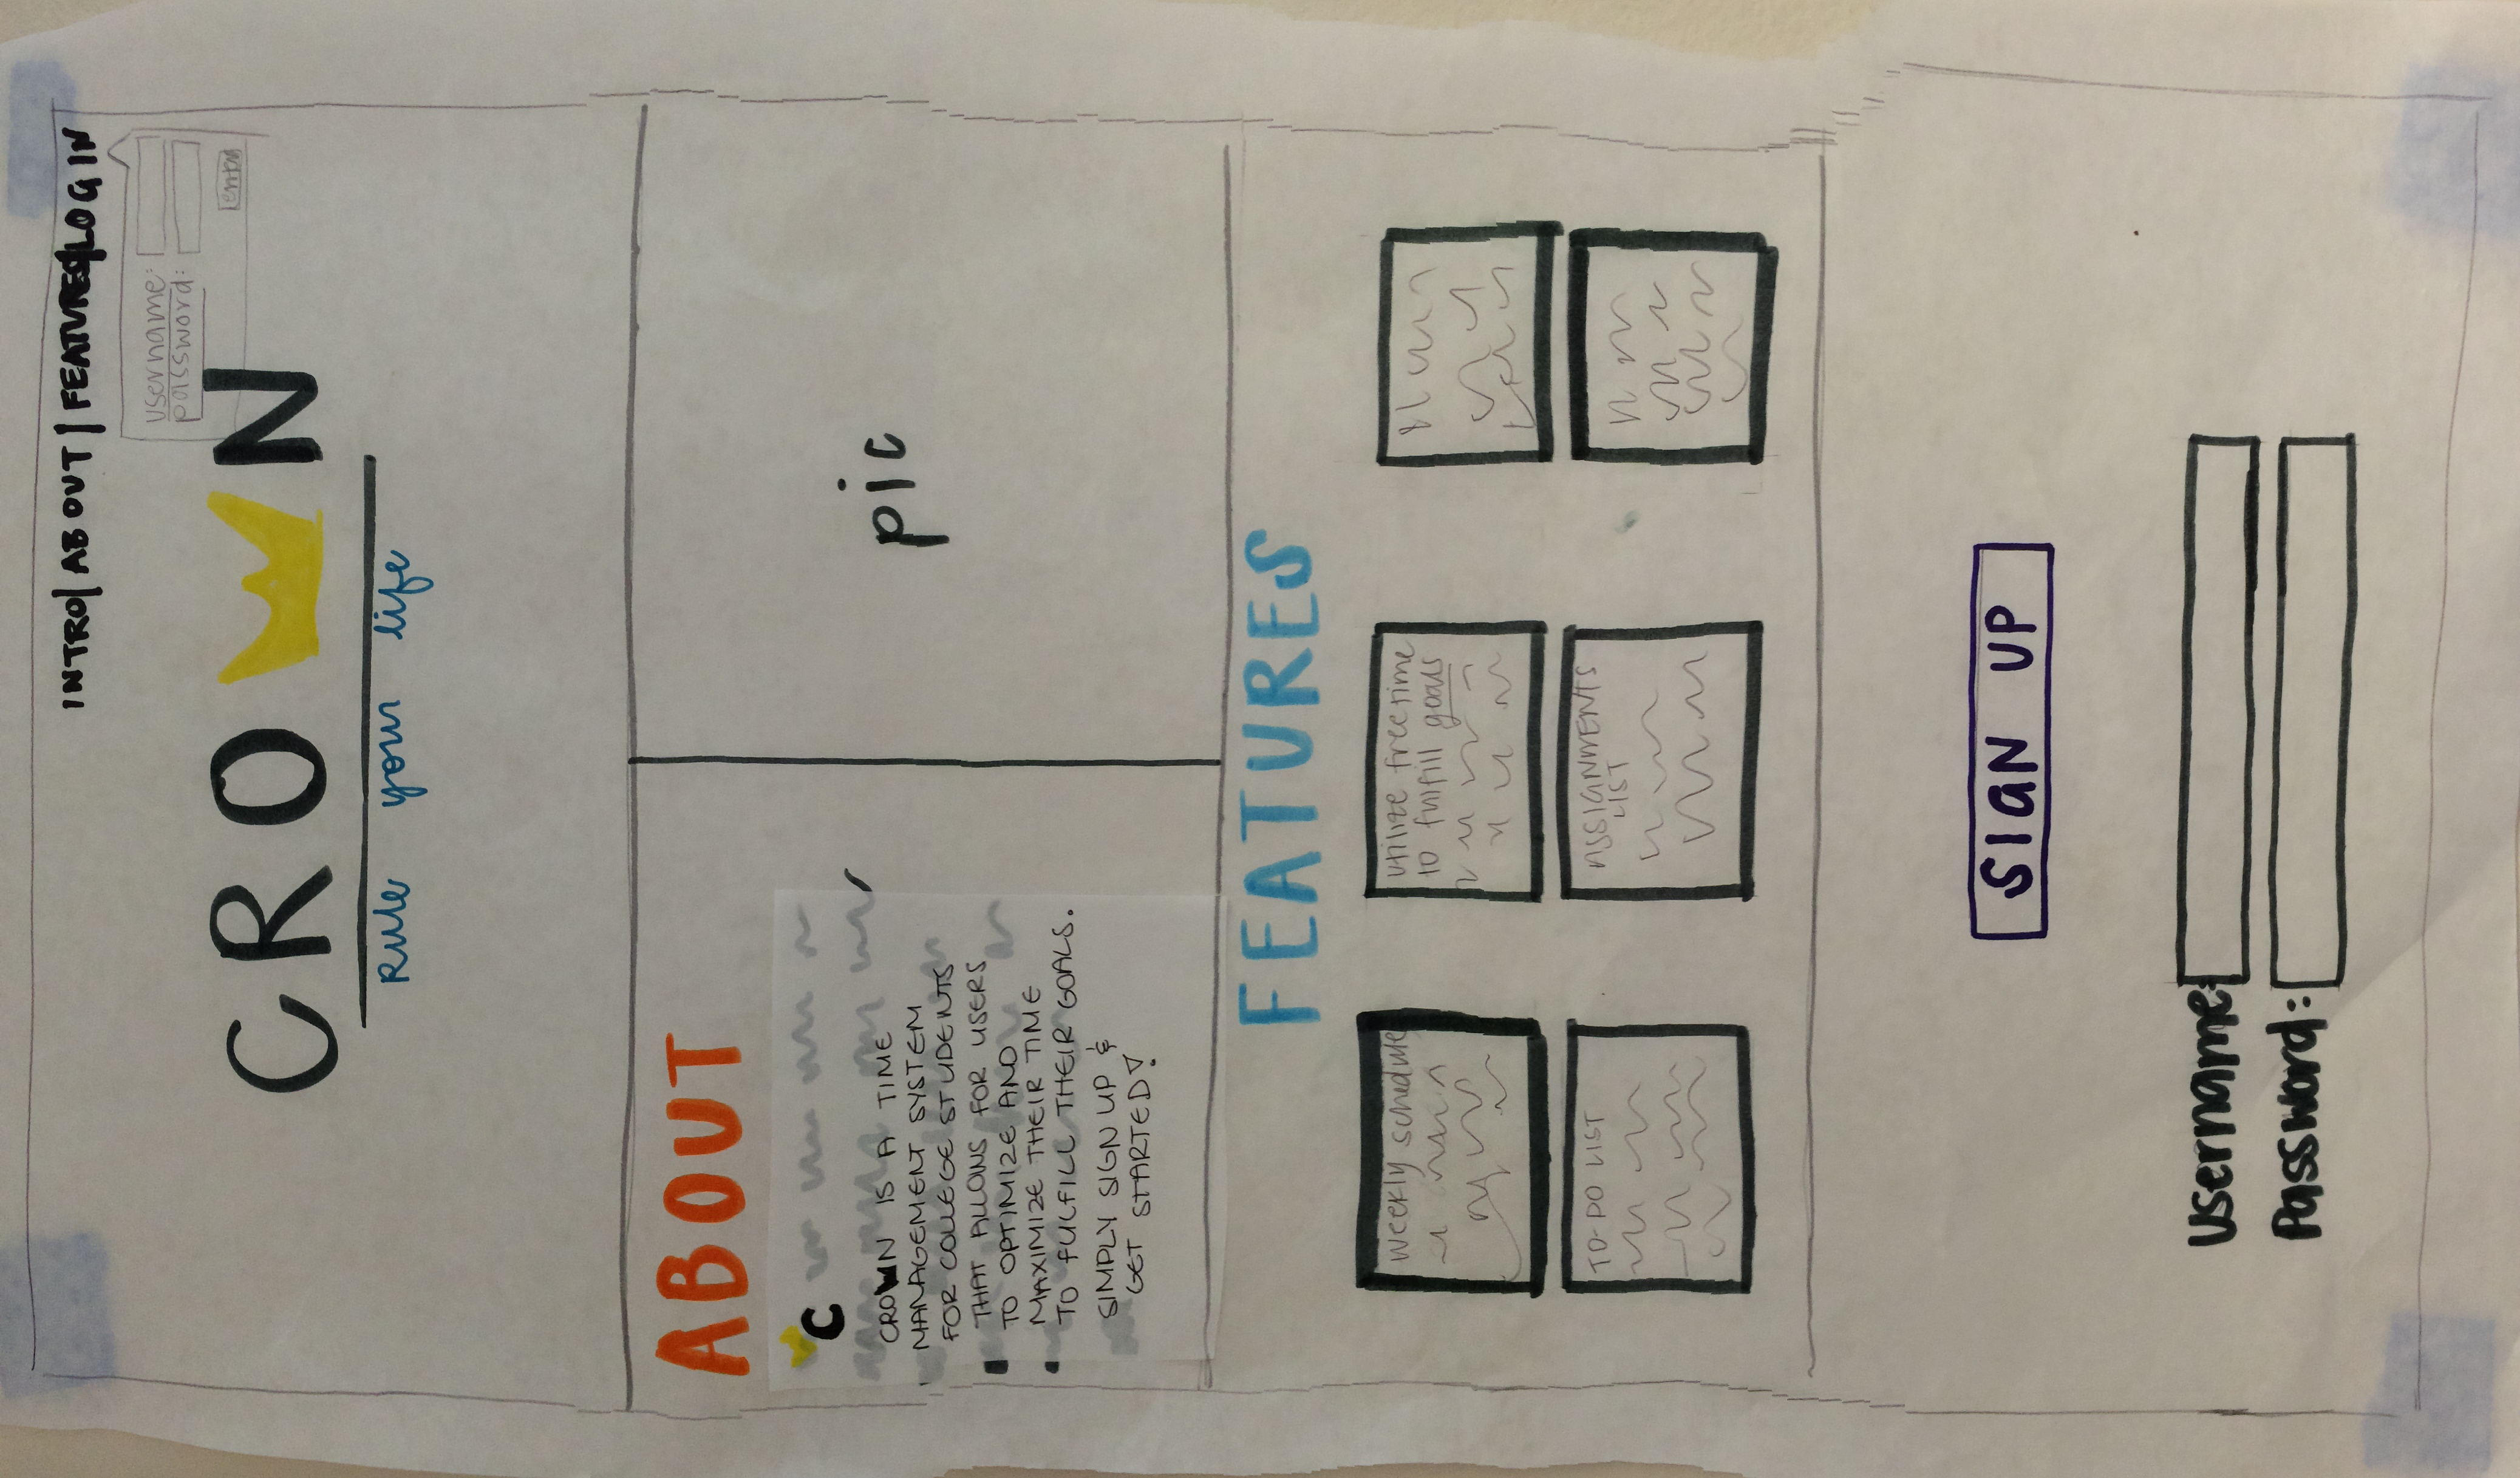 INTRO| ABOUT | FEATURES|LOG IN
username:
password:
enter
CRO N
Rule your life
ABOUT
C
CROWN IS A TIME
MANAGEMENT SYSTEM
FOR COLLEGE STUDENTS
THAT ALLOWS FOR USERS
TO OPTIMIZE AND
MAXIMIZE THEIR TIME
TO FULFILL THEIR GOALS.
SIMPLY SIGN UP &
GET STARTED!
pic
FEATURES
weekly schedule
utilize freetime
to fulfill goals
TO-DO LIST
ASSIGNMENTS
LIST
SIGN UP
Username:
Password: